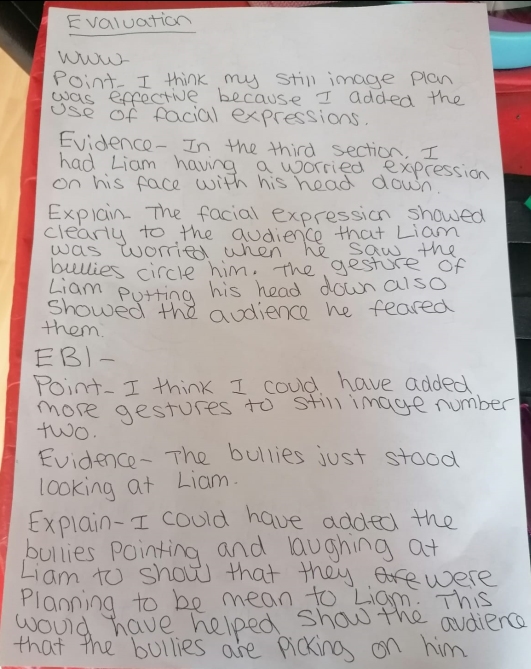 Evaluation
WWW-
Point- I think my still image plan
was effective because I added the
use of facial expressions.
Evidence- In the third section, I
had Liam having a worried expression
on his face with his head down.
Explain- The facial expression showed
clearly to the audience that Liam
was worried when he saw the
bullies circle him. The gesture of
Liam putting his head down also
showed the audience he feared
them.
EBI-
Point- I think I could have added
more gestures to still image number
two.
Evidence- The bullies just stood
looking at Liam.
Explain- I could have added the
bullies pointing and laughing at
Liam to show that they are were
planning to be mean to Liam. This
would have helped show the audience
that the bullies are picking on him